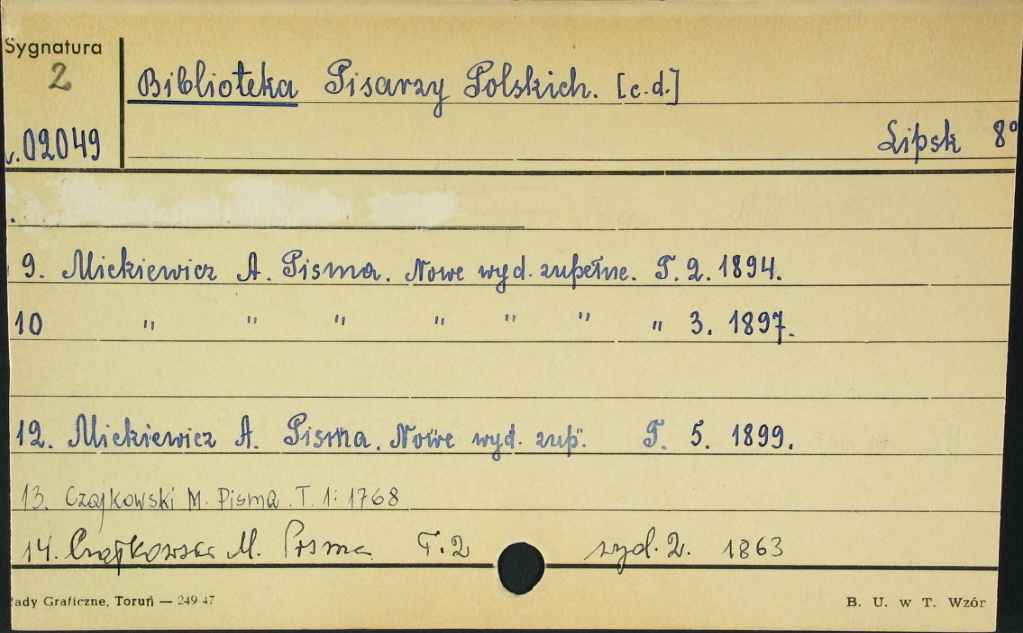 Sygnatura
2
Biblioteka Pisarzy Polskich. [c.d.]
02049
Lipsk 8°
9. Mickiewicz A. Pisma. Nowe wyd. zupełne. T. 2. 1894.
10 " " " " " " " 3. 1897.
12. Mickiewicz A. Pisma. Nowe wyd. zup. T. 5. 1899.
13. Czajkowski M. Pisma. T. 1: 1768
14. Czajkowski M. Pisma T. 2 wyd. 2. 1863
ady Graficzne, Toruń — 249 47
B. U. w T. Wzór